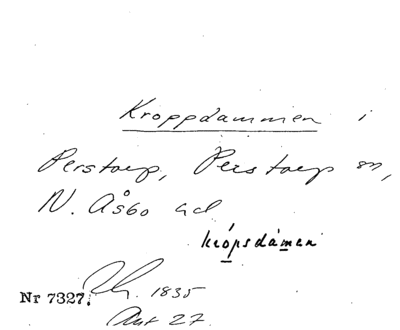 Kroppdammen i
Perstorp, Perstorp sn,
N. Åsbo hd
kròpsdamen
Nr 7327. 1835
Art 27.